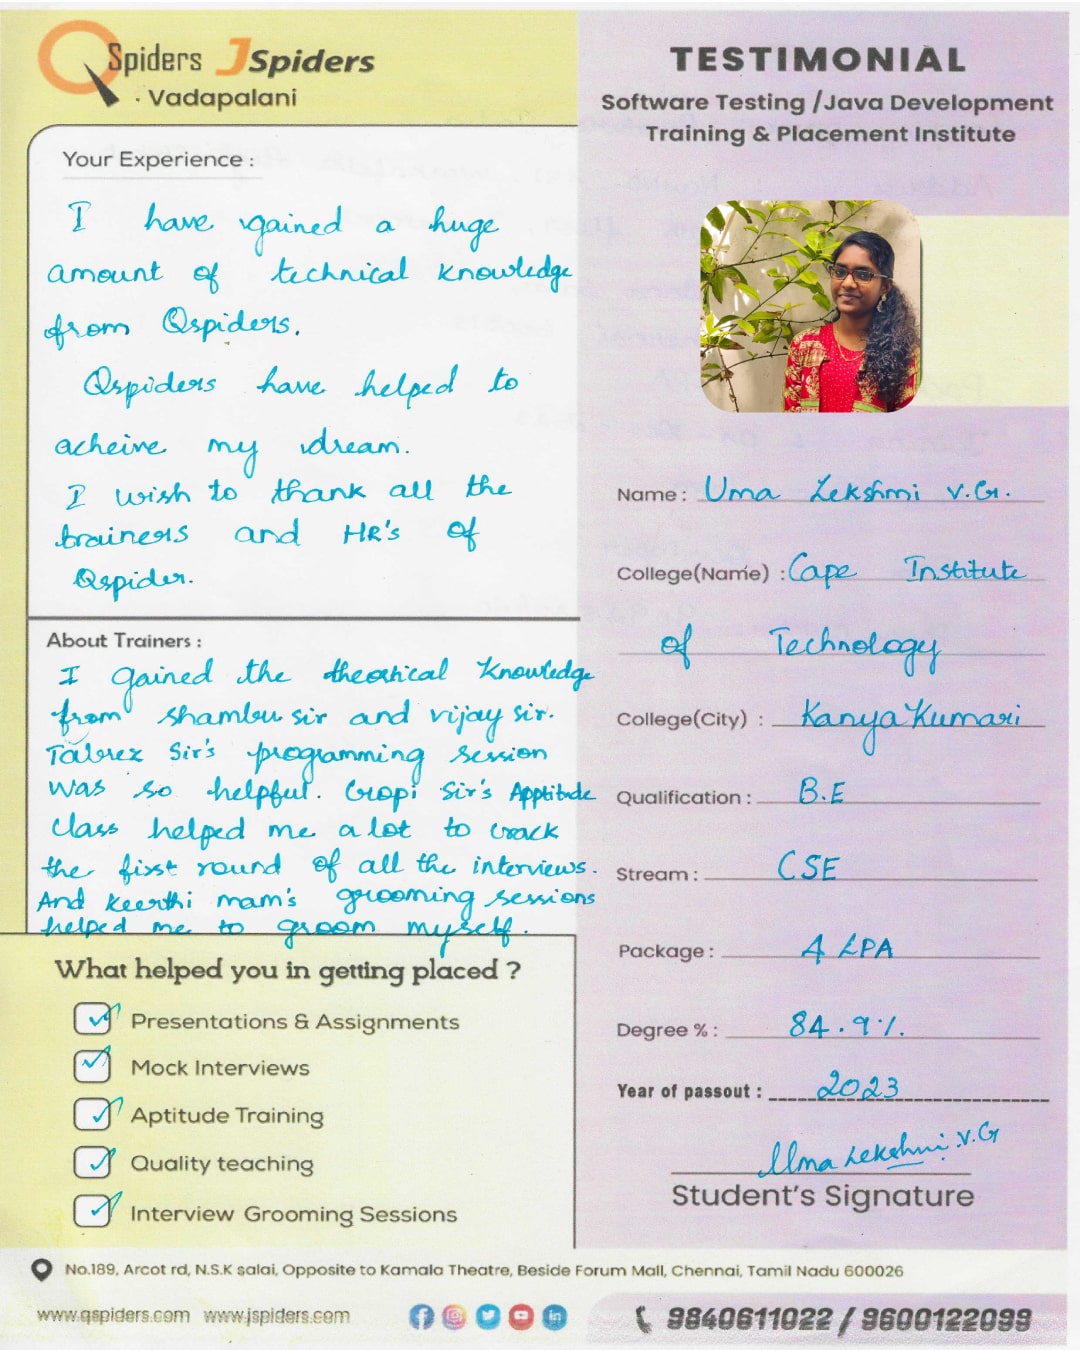 QSpiders JSpiders
Vadapalani
TESTIMONIAL
Software Testing /Java Development
Training & Placement Institute
Your Experience :
I have gained a huge
amount of technical knowledge
from Qspiders.
Qspiders have helped to
acheive my dream.
I wish to thank all the
trainers and HR's of
Qspider.
About Trainers :
I gained the theortical knowledge
from Shambu sir and vijay sir.
Tabrez Sir's programming session
was so helpful. Gopi Sir's Apptitude
class helped me a lot to crack
the first round of all the interviews.
And keerthi mam's grooming sessions
helped me to groom myself.
What helped you in getting placed ?
Presentations & Assignments
Mock Interviews
Aptitude Training
Quality teaching
Interview Grooming Sessions
Name : Uma Lekshmi V.G.
College(Name) : Cape Institute
of Technology
College(City) : Kanyakumari
Qualification : B.E
Stream : CSE
Package : 4 LPA
Degree % : 84.9%.
Year of passout : 2023
Uma Lekshmi V.G
Student's Signature
No.189, Arcot rd, N.S.K salai, Opposite to Kamala Theatre, Beside Forum Mall, Chennai, Tamil Nadu 600026
www.qspiders.com www.jspiders.com
9840611022 / 9600122099